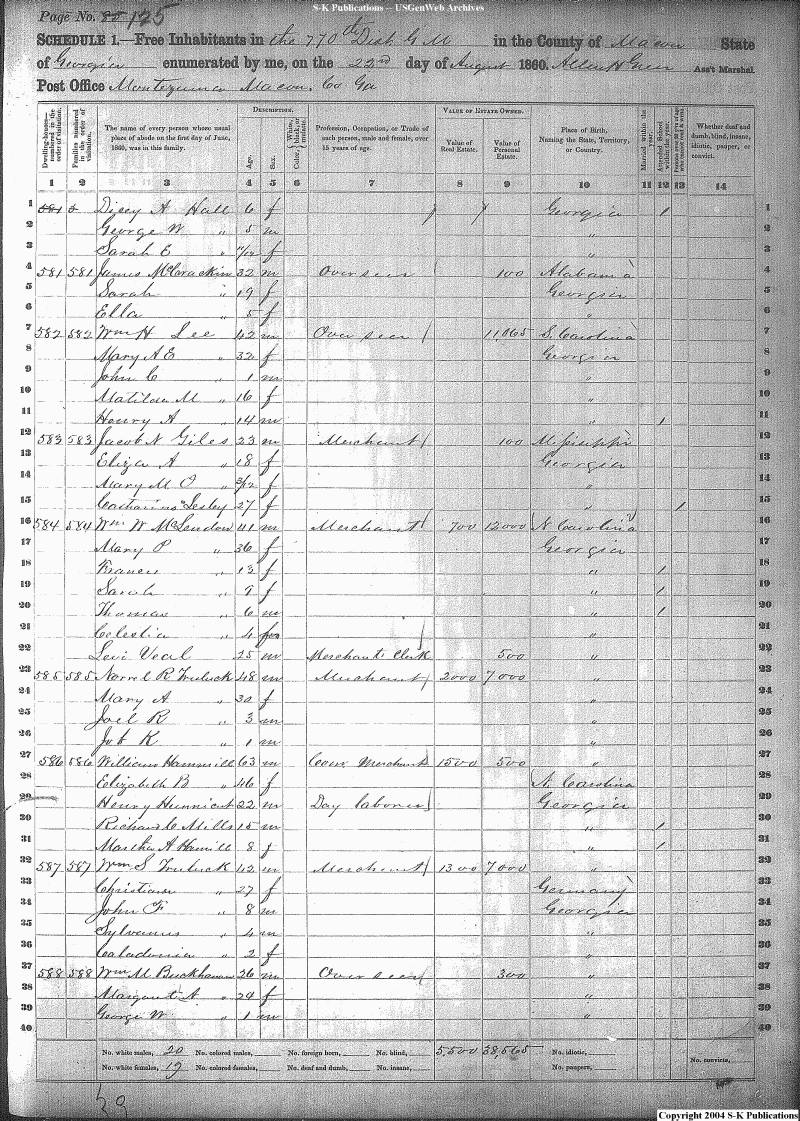 S-K Publications -- USGenWeb Archives
Page No. 125
SCHEDULE 1.—Free Inhabitants in the 770th Dist G M in the County of Macon State
of Georgia enumerated by me, on the 22nd day of August 1860. Allen H Greer Ass't Marshal.
Post Office Montezuma Macon Co Ga
Dwelling-houses—numbered in the order of visitation.
Families numbered in the order of visitation.
The name of every person whose usual place of abode on the first day of June, 1860, was in this family.
DESCRIPTION.
Age.
Sex.
Color, { White, black, or mulatto.
Profession, Occupation, or Trade of each person, male and female, over 15 years of age.
VALUE OF ESTATE OWNED.
Value of Real Estate.
Value of Personal Estate.
Place of Birth, Naming the State, Territory, or Country.
Married within the year.
Attended School within the year.
Persons over 20 years of age who cannot read & write.
Whether deaf and dumb, blind, insane, idiotic, pauper, or convict.
1 2 3 4 5 6 7 8 9 10 11 12 13 14
1 581 Dicey A Hall 6 f Georgia / 1
2 George W " 5 m " 2
3 Sarah E " f " 3
4 581 581 James McCrackin 32 m Overseer 100 Alabama 4
5 Sarah " 19 f Georgia 5
6 Ella " 5 f " 6
7 582 582 Wm H Lee 42 m Overseer 11,065 S. Carolina 7
8 Mary A E " 32 f Georgia 8
9 John C " 1 m " 9
10 Matilda M " 16 f " 10
11 Henry A " 14 m " / 11
12 583 583 Jacob N Giles 23 m Merchant 100 Mississippi 12
13 Eliza A " 18 f Georgia 13
14 Mary M O " 3/12 f " 14
15 Catharine Lesley 27 f " / 15
16 584 584 Wm W McLendon 41 m Merchant 700 12000 N Carolina 16
17 Mary P " 36 f Georgia 17
18 Frances " 12 f " / 18
19 Sarah " 9 f " / 19
20 Thomas " 6 m " / 20
21 Celestia " 4 f " 21
22 Levi Veal 25 m Merchants Clerk 500 " 22
23 585 585 Norrel R Truluck 48 m Merchant 2000 7000 " 23
24 Mary A " 30 f " 24
25 Joel R " 3 m " 25
26 Job K " 1 m " 26
27 586 586 William Hammill 63 m Com Merchant 1500 500 " 27
28 Elizabeth B " 46 f N. Carolina 28
29 Henry Hunnicut 22 m Day laborer Georgia 29
30 Richard C Mills 15 m " / 30
31 Martha A Hamill 8 f " / 31
32 587 587 Wm S Truluck 42 m Merchant 1300 7000 " 32
33 Christiana " 27 f Germany 33
34 John F " 8 m Georgia 34
35 Sylvanus " 4 m " 35
36 Caladonia " 2 f " 36
37 588 588 Wm M Buckhannan 26 m Overseer 300 " 37
38 Margaret A " 24 f " 38
39 George W " 1 m " 39
40 40
No. white males, 20 No. colored males, No. foreign born, No. blind, 5,500 38,565 No. idiotic,
No. white females, 19 No. colored females, No. deaf and dumb, No. insane, No. paupers, No. convicts,
Copyright 2004 S-K Publications